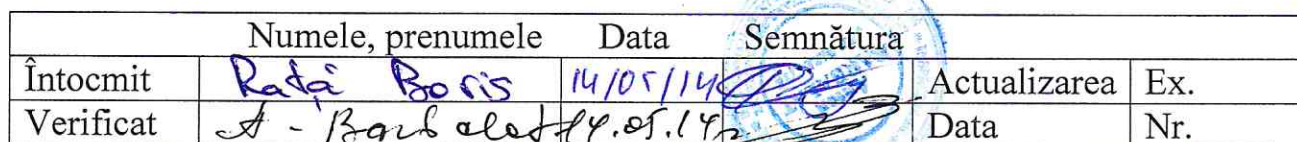 Numele, prenumele Data Semnătura
Întocmit Rață Boris 14/05/14 Actualizarea Ex.
Verificat A - 14.05.14 Data Nr.